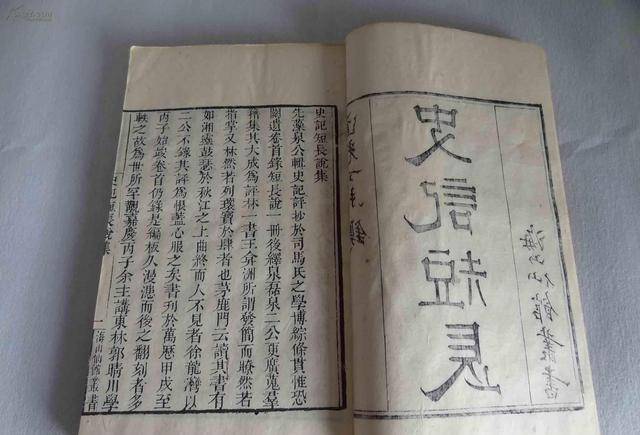 史記短長
海山仙館叢書
史記短長說集
先藻泉公輯史記評抄於司馬氏之學博綜條貫惟恐
闕遺卷首錄短長說一冊後繹泉磊泉二公更廣蒐羣
籍集其大成為評林一書王弇洲所謂發簡而瞭然若
指掌又林然若列瓊寶於肆者也茅鹿門云讀其書有
如湘靈鼓瑟於秋江之上曲終而人不見者徐龍灣以
二公不錄其評為恨蓋心服之矣書刊於萬曆甲戌至
丙子始竣卷首仍錄是編板久漫漶而後之翻刻者多
軼之故為世所罕覯嘉慶丙子余主講東林郭晴川學
一
海山仙館叢書